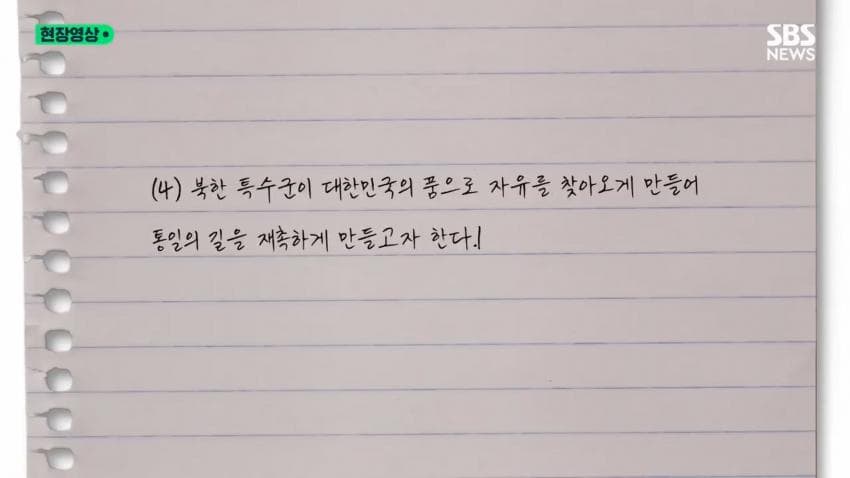 현장영상
SBS
NEWS
(4) 북한 특수군이 대한민국의 품으로 자유를 찾아오게 만들어
통일의 길을 재촉하게 만들고자 한다.